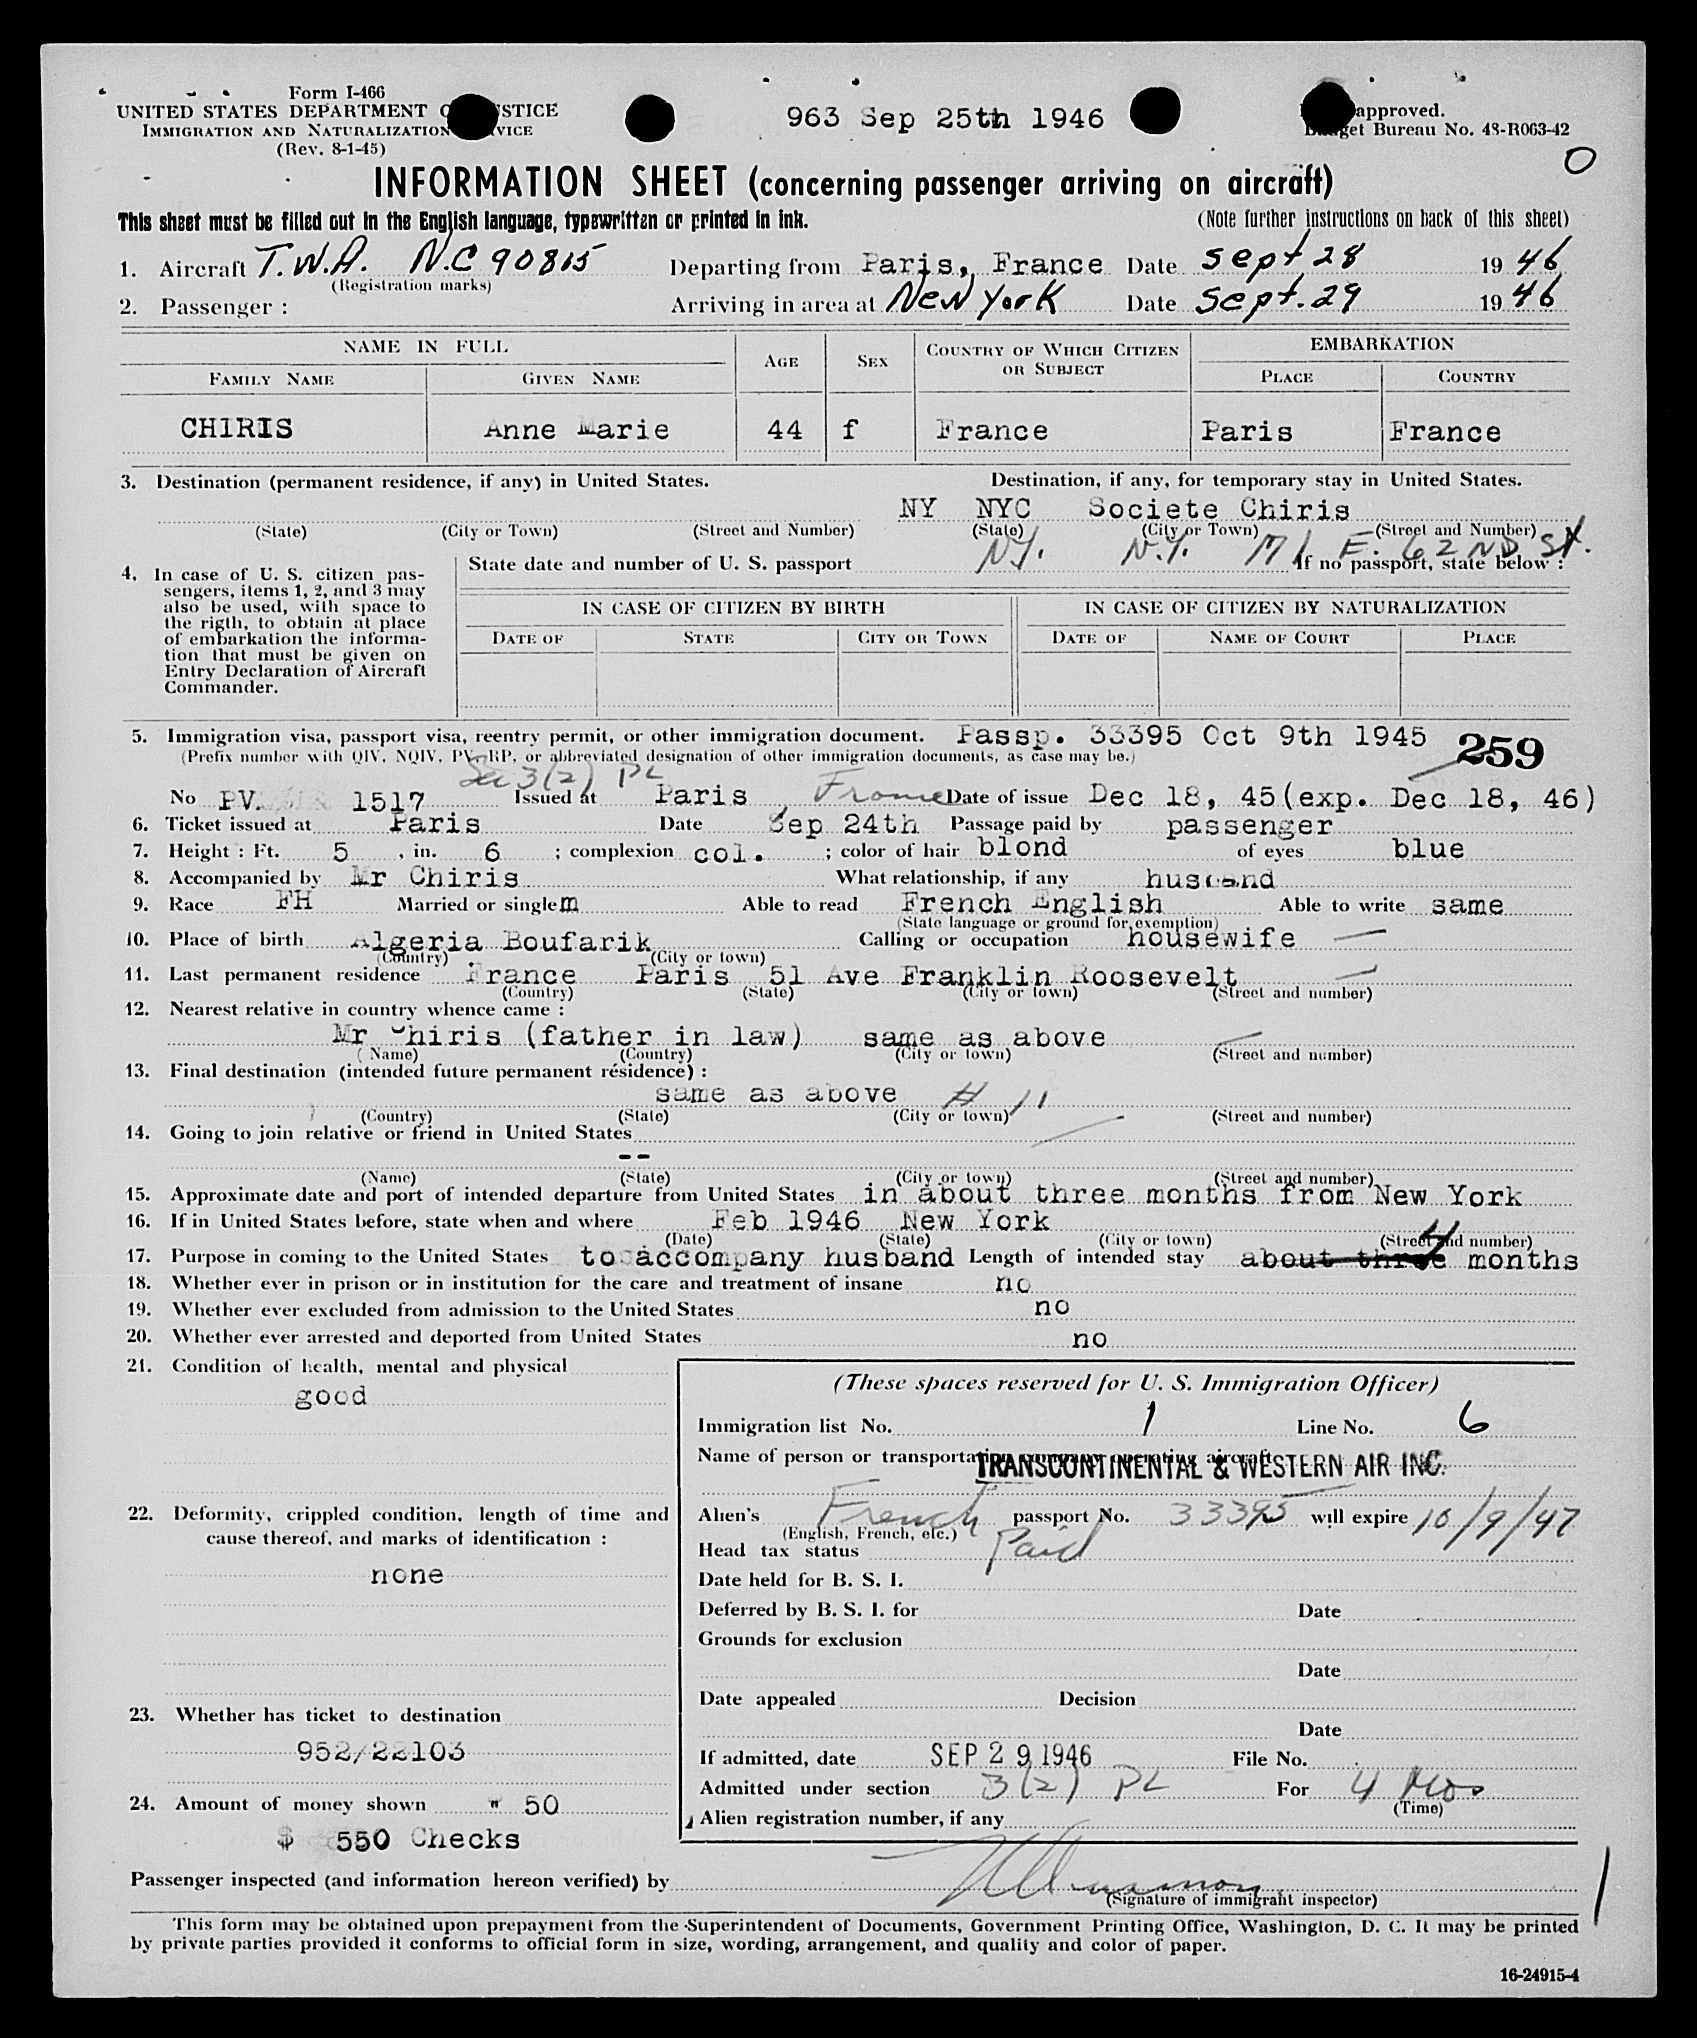 Form I-466
UNITED STATES DEPARTMENT O STICE
IMMIGRATION AND NATURALIZATION VICE
(Rev. 8-1-45)
963 Sep 25th 1946
approved.
get Bureau No. 43-R063-42
O
INFORMATION SHEET (concerning passenger arriving on aircraft)
This sheet must be filled out in the English language, typewritten or printed in ink. (Note further instructions on back of this sheet)
1. Aircraft T.W.A. N.C 90815 Departing from Paris, France Date Sept 28 1946
(Registration marks)
2. Passenger : Arriving in area at New York Date Sept. 29 1946
NAME IN FULL AGE SEX COUNTRY OF WHICH CITIZEN OR SUBJECT EMBARKATION
FAMILY NAME GIVEN NAME PLACE COUNTRY
CH1RIS Anne Marie 44 f France Paris France
3. Destination (permanent residence, if any) in United States. Destination, if any, for temporary stay in United States.
NY NYC Societe Chiris
(State) (City or Town) (Street and Number) (State) (City or Town) (Street and Number)
N.Y. N.Y. 171 E. 62 ND St.
4. In case of U. S. citizen pas-
sengers, items 1, 2, and 3 may
also be used, with space to
the rigth, to obtain at place
of embarkation the informa-
tion that must be given on
Entry Declaration of Aircraft
Commander.
State date and number of U. S. passport If no passport, state below :
IN CASE OF CITIZEN BY BIRTH IN CASE OF CITIZEN BY NATURALIZATION
DATE OF STATE CITY OR TOWN DATE OF NAME OF COURT PLACE
5. Immigration visa, passport visa, reentry permit, or other immigration document. Passp. 33395 Oct 9th 1945 259
(Prefix number with QIV, NQIV, PV, RP, or abbreviated designation of other immigration documents, as case may be.)
Sec 3(2) PL
No PV. 1517 Issued at Paris, France Date of issue Dec 18, 45(exp. Dec 18, 46)
6. Ticket issued at Paris Date Sep 24th Passage paid by passenger
7. Height : Ft. 5 , in. 6 ; complexion col. ; color of hair blond of eyes blue
8. Accompanied by Mr Chiris What relationship, if any husband
9. Race FH Married or single m Able to read French English Able to write same
(State language or ground for exemption)
10. Place of birth Algeria Boufarik Calling or occupation housewife
(Country) (City or town)
11. Last permanent residence France Paris 51 Ave Franklin Roosevelt
(Country) (State) (City or town) (Street and number)
12. Nearest relative in country whence came :
Mr Chiris (father in law) same as above
(Name) (Country) (City or town) (Street and number)
13. Final destination (intended future permanent résidence) :
same as above # 11
(Country) (State) (City or town) (Street and number)
14. Going to join relative or friend in United States
--
(Name) (State) (City or town) (Street and number)
15. Approximate date and port of intended departure from United States in about three months from New York
16. If in United States before, state when and where Feb 1946 New York
(Date) (State) (City or town) (Street and number)
17. Purpose in coming to the United States to accompany husband Length of intended stay about three 4 months
18. Whether ever in prison or in institution for the care and treatment of insane no
19. Whether ever excluded from admission to the United States no
20. Whether ever arrested and deported from United States no
21. Condition of health, mental and physical
good
22. Deformity, crippled condition, length of time and
cause thereof, and marks of identification :
none
23. Whether has ticket to destination
952/22103
24. Amount of money shown " 50
$ 550 Checks
(These spaces reserved for U. S. Immigration Officer)
Immigration list No. 1 Line No. 6
Name of person or transportation company operating aircraft
TRANSCONTINENTAL & WESTERN AIR INC.
Alien's French passport No. 33395 will expire 10/9/47
(English, French, etc.)
Head tax status Paid
Date held for B. S. I.
Deferred by B. S. I. for Date
Grounds for exclusion
Date
Date appealed Decision
Date
If admitted, date SEP 29 1946 File No.
Admitted under section 3(2) PL For 4 Mos
(Time)
Alien registration number, if any
Passenger inspected (and information hereon verified) by
(Signature of immigrant inspector)
This form may be obtained upon prepayment from the Superintendent of Documents, Government Printing Office, Washington, D. C. It may be printed
by private parties provided it conforms to official form in size, wording, arrangement, and quality and color of paper.
16-24915-4